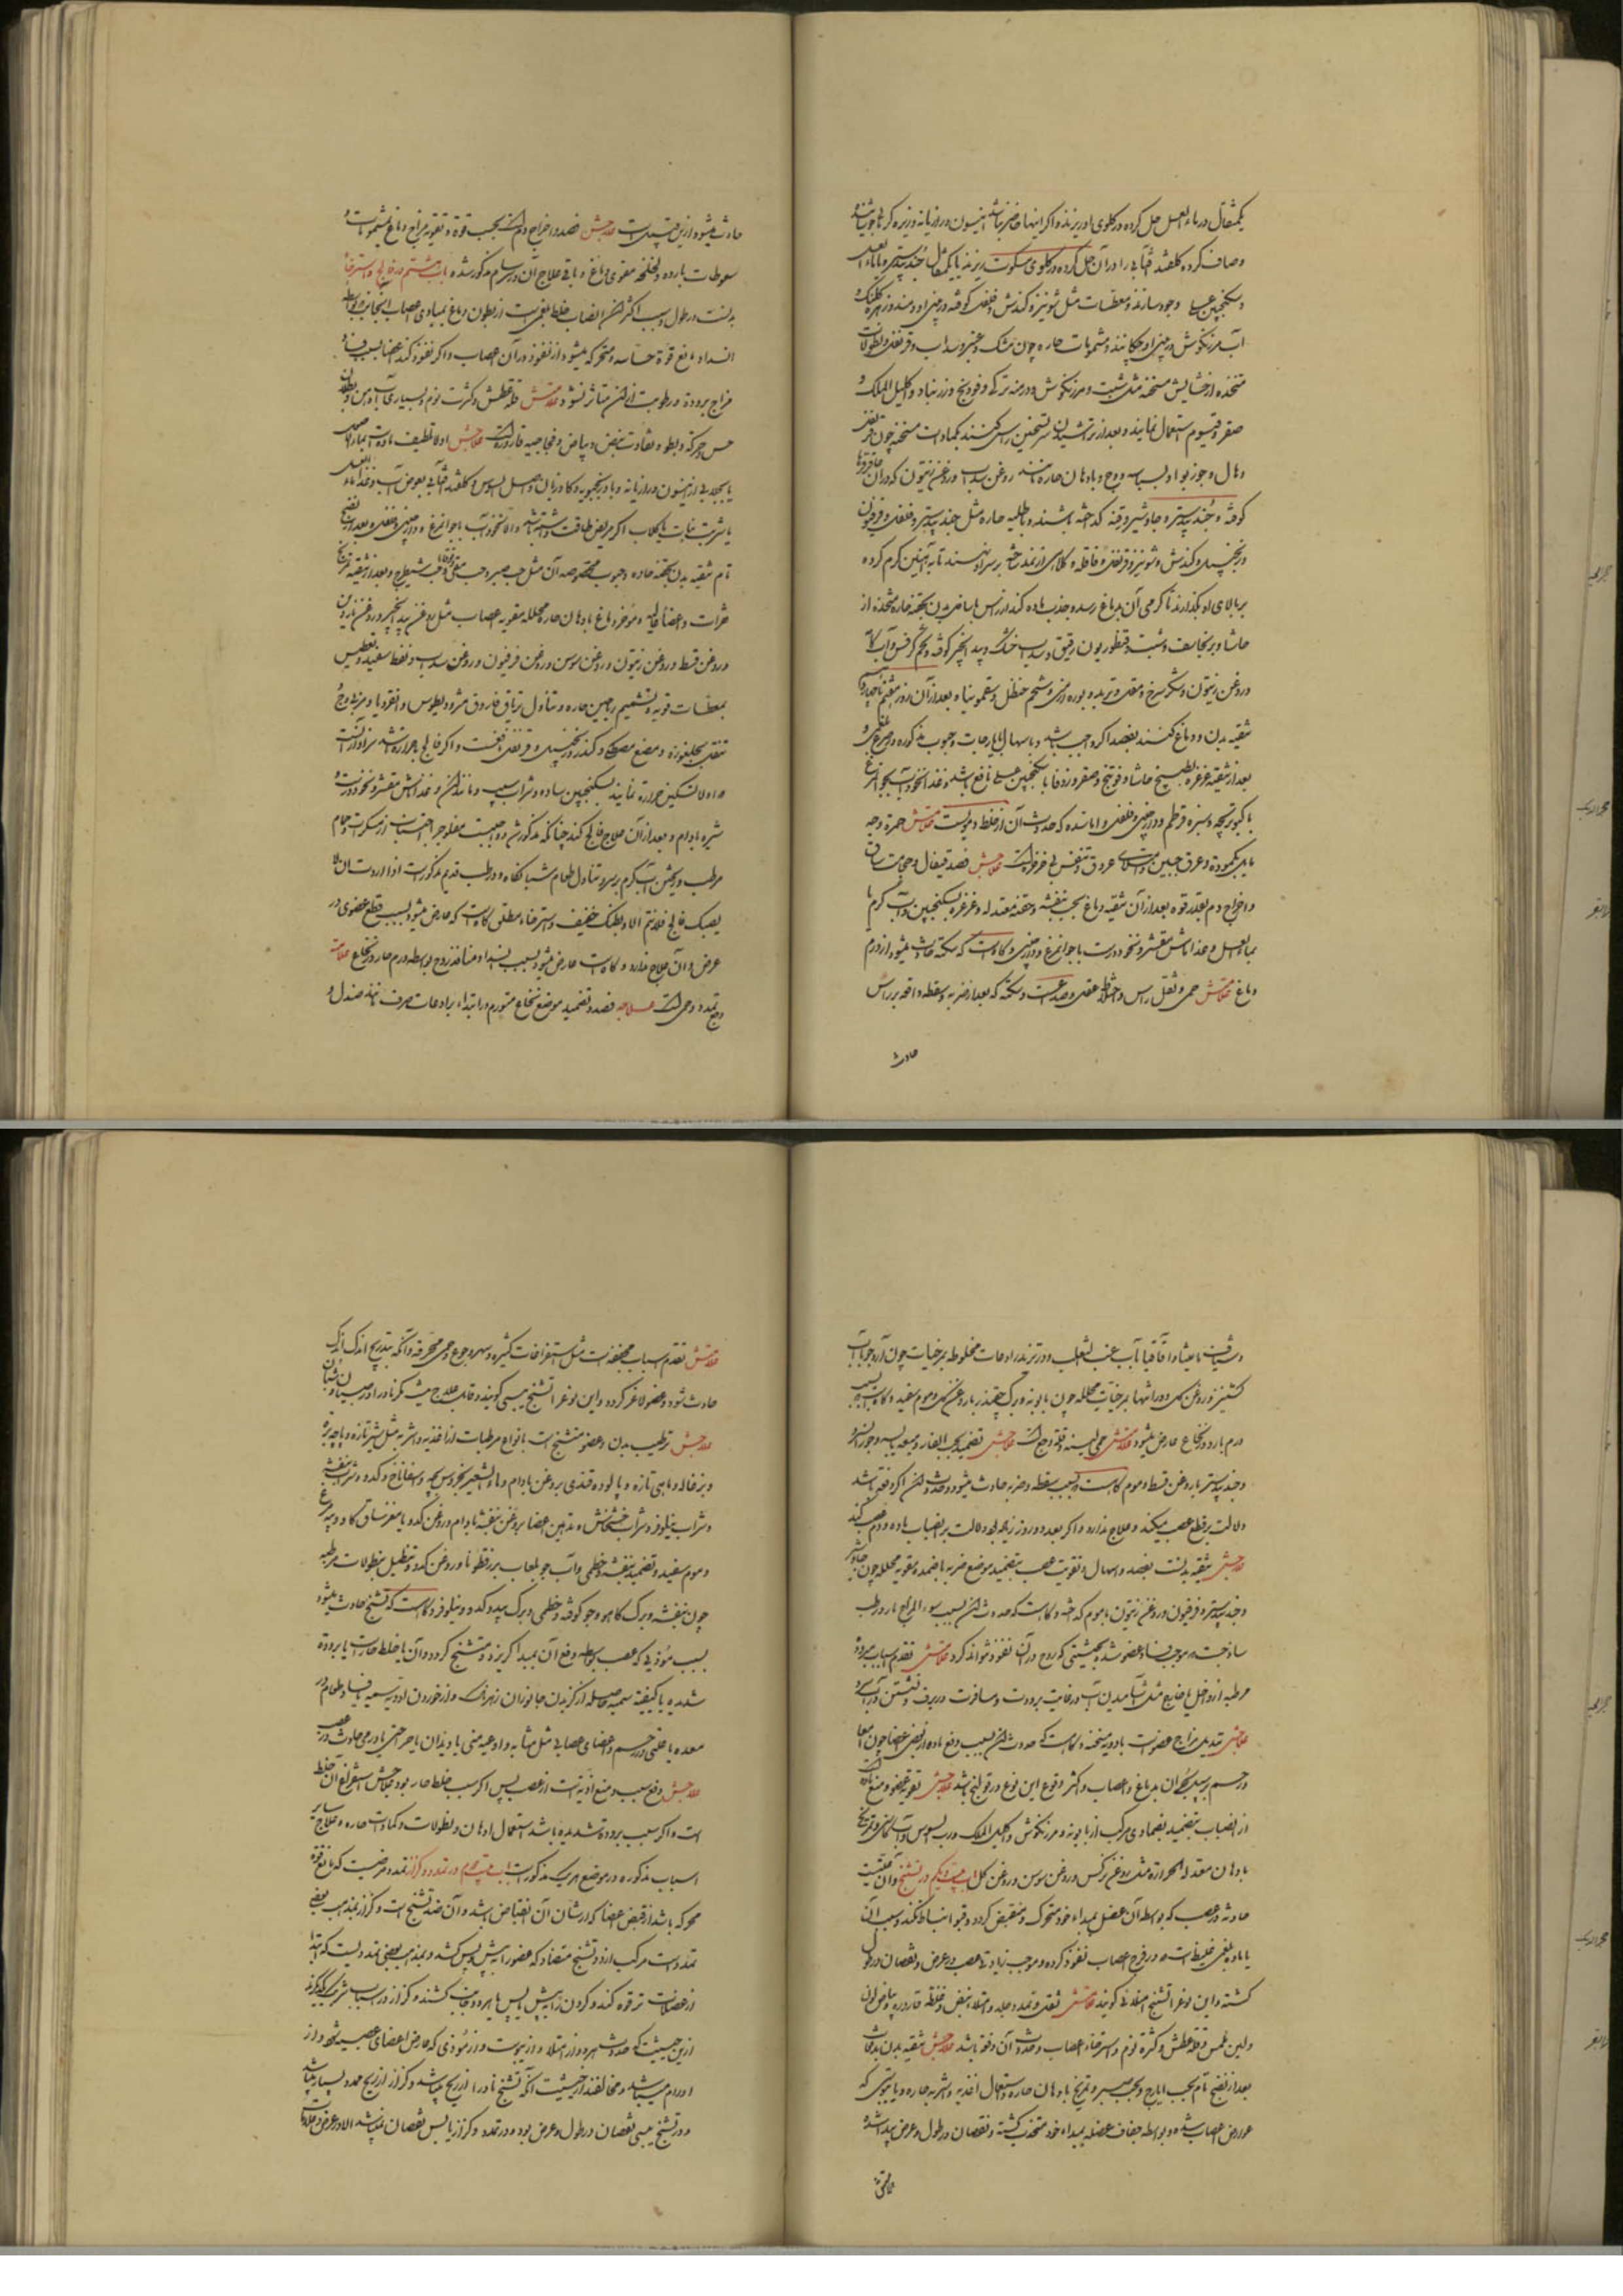 یکمثقال در ماء العسل حل کرده در کلوی او ریزند و اگر اینها حاضر نباشد انیسون و رازیانه و زیره کرمانی جوشانیده
و صاف کرده کلقند آفتابی را در آن حل کرده در کلوی مسکوت ریزند یا یکمثقال جندبیدستر با ماء العسل
و سکنجبین عسلی وجود سازند و معطسات مثل شونیز و کندش و فلفل کوفته در بینی او دمند و زهره کلنک و
آب مرزنکوش در بینی او چکانند و مشمومات حاره چون مشک و عنبر و سداب و قرنفل و نطولات
متخذه از حشایش مسخنه مثل شبت و مرزنکوش و درمنه ترکی و فودنج و زرنباد و اکلیل الملک و
صعتر و قیصوم استعمال نمایند و بعد از تراشیدن سر تسخین راس کنند بکمادات مسخنه چون قرنفل
و هال و جوز بوا و بسباسه و وج و بادهان حاره مانند روغن سداب و روغن زیتون که در آن عاقرقرحا
کوفته و جندبیدستر و جاوشیر و قنه گداخته باشند و باطلیه حاره مثل جندبیدستر و فلفل و فرفیون
و زنجبیل و کندش و شونیز و قرنفل و قاقله و کلاهی از نمد بر سر او نهند تابه آهنین گرم کرده
بر بالای او بگذارند تا گرمی آن بدماغ رسد و جذب ماده کند از راس باسافل بدن بحقنه حاره متخذه از
حاشا و برنجاسف و شبت و قنطوریون رقیق و سداب خشک و بید انجیر کوفته و تخم کرفس و آب
و روغن زیتون و شکر سرخ و مقل و تربد و بوره ارمنی و شحم حنظل و سقمونیا و بعد از آن روز هفتم تا چهاردهم
تنقیه بدن و دماغ کنند بفصد اگر واجب باشد و باسهال بایارجات و حبوب مذکوره در صرع بلغمی و
بعد از تنقیه غرغره بطبیخ حاشا و فوتنج و صعتر و زوفا با سکنجبین عسلی نافع باشد و غذا نخود آب بچوزه مرغ
یا کبوتر بچه و شیره قرطم و دارچینی و فلفل و اما سکته که حدوث آن از خلط دمویست علامتش حمرة وجه
مایل بکمودة و عرق جبین و امتلای عروق و تنفس بی خرخره است علاجش فصد قیفال و حجامت ساق
و اخراج دم بقدر قوه بعد از آن تنقیه دماغ بحب بنفشه و حقنه معتدله و غرغره بسکنجبین و آب گرم یا
بماء العسل و غذا ماش مقشر و نخود درست با جوزه مرغ و دارچینی و گاه است که سکته حادث میشود از ورم
دماغ علامتش حمی و ثقل راس و اختلاط عقل و صداعست و سکته که بعد از ضربه و سقطه واقعه بر راس
حادث
حادث میشود از این قبیل است علاجش فصد و اخراج دم است بحسب قوة و تقویه مزاج دماغ بمشمومات و
سعوطات بارده و لخلخه مقوی دماغ و باقی علاج آن در سرسام مذکور شده باب هشتم در فالج و استرخاء
بدنست در طول و سبب اکثر آن انصباب خلط بلغمیست از بطون دماغ بمبادی اعصاب آنجانب بواسطه
انسداد مانع قوة حساسه و محرکه میشود از نفوذ در آن اعصاب و اگر نفوذ کند اعضا بسبب فساد
مزاج برودة و رطوبت از آن متاثر نشود علامتش قلة عطش و کثرت نوم و بسیاری آب دهن و بطلان
حس و حرکة و بطو و تفاوت نبض و بیاض و فجاجیه قاروره است علاجش اولا تلطیف ماده است
یا بجلابی از انیسون و رازیانه و بادرنجبویه و کاوزبان و اصل السوس و کلقند آفتابی بعوض آب و غذا ماء العسل
یا شربت نبات با گلاب اگر مریض طاقت داشته باشد والا نخود آب با جوزه مرغ و دارچینی و فلفل و بعد از نضج
تام تنقیه بدن بحقنه حاده و حبوب مخصوصه آن مثل حب صبر و حب مقل و حب شیطرج و بعد از تنقیه تمریخ
فقرات و اعضا و مؤخر دماغ بادهان حاره محلله مقویه اعصاب مثل روغن بید انجیر و روغن ناردین
و روغن قسط و روغن زیتون و روغن سوسن و روغن فرفیون و روغن سداب و نفط سفید و تعطیس
بمعطسات قویه و تشمیم ریاحین حاره و تناول تریاق فاروق و مثرودیطوس و انقردیا و مربی وج و
تنقل بجلغوزه و مضغ مصطکی و کندر و زنجبیل و قرنفل نافعست و اگر فالج با حرارة باشد سزاوار آنست
که اولا تسکین حرارة نمایند بسکنجبین ساده و شراب سیب و مانند آن و غذا ماش مقشر و نخود درست و
شیره بادام و بعد از آن علاج فالج کند چنانکه مذکور شد و واجبست مفلوج را اجتناب از مسکرات و حمام
مرطب و ریختن آب گرم بر سر و تناول طعام شبانگاه و در طب قدیم مذکور است اذا اردت ان لا
یصبک فالج فلا تنم الا و بطنک خفیف و استرخاء مطلق گاه است که عارض میشود بسبب قطع عضوی در
عرض و آن علاج ندارد و گاه است عارض میشود بسبب انسداد منافذ روح بواسطه ورم حار در نخاع علامت
وجع تمدد و حمی است علاجه فصد و تضمید موضع نخاع متورم در ابتداء برادعات صرف مانند صندل و
و شیاف مامیثا و اقاقیا با آب عنب الثعلب و در تزید رادعات مخلوطه بمرخیات چون آرد جو با آب
کشنیز و روغن گل و در انتها بمرخیات محلله چون بابونه و برگ چغندر با روغن گل و موم سفید و گاه است بسبب
ورم بارد در نخاع عارض میشود علامتش حمی لینه و قلة وجع است علاجش تضمید بحب الغار و میعه یابسه و جوز السرو
و جندبیدستر با روغن قسط و موم گاه است بسبب سقطه و ضربه حادث میشود و حدوث آن اگر دفعة باشد
دلالت بر قطع عصب میکند و علاج ندارد و اگر بعد دو روز زیاده دلالت بر انصباب ماده و ورم عصب کند
علاجش تنقیه بدنست بفصد و اسهال و تقویت عصب بتضمید موضع ضربه باضمده مقویه محلله چون جاوشیر
و جندبیدستر و فرفیون و روغن زیتون با موم گداخته و گاه است که حدوث آن بسبب سوء المزاج بارد رطب
ساذجست و موجب فساد عضو شده بحیثیتی که روح در آن نفوذ نتواند کرد علامتش تقدم اسباب مبرده
مرطبه از داخل یا خارج مثل آشامیدن آب در غایت برودت و مسافرت در برف و نشستن در آب سرد
علاجش تبدیل مزاج عضو است بادویه مسخنه و گاه است که حدوث آن بسبب دفع ماده از بعض اعضا چون امعا
و رحم بر سبیل بحران بدماغ و اعصاب و اکثر وقوع این نوع در قولنج باشد علاجش تقویه عضو و منع ماده
از انصباب بتضمید بضمادی مرکب از بابونه و مرزنکوش و اکلیل الملک و رب السوس و آب و تمریخ
بادهان معتدله الحرارة مثل روغن نرگس و روغن سوسن و روغن گل باب بیست و یکم در تشنج و آن علتیست
حادثه در عصب که بواسطه آن عضل بمبداء خود متحرک و منقبض گردد و قبول انبساط نکند و سبب آن
یا ماده بلغمی غلیظ است که در فرج اعصاب نفوذ کرده و موجب زیادتی عصب در عرض و نقصان در طول
گشته و این نوع را تشنج امتلائی گویند علامتش ثقل و تمدد جلد و امتلاء نبض و غلظ قاروره و بیاض لون
و لین ملمس و قلة عطش و کثرة نوم و استرخاء اعصاب و حدوث آن دفعة باشد علاجش تنقیه بدن بدفعات
بعد از نضج تام بحب ایارج و بحب صبر و تمریخ بادهان حاره و استعمال اغذیه و اشربه حاره و یا یبوستی که
عارض اعصاب شده و بواسطه جفاف عضله بمبداء خود منجذب گشته و نقصان در طول و عرض پیدا شده
علامتش
علامتش تقدم اسباب مجففه است مثل استفراغات کثیره و سهر و جوع و حمی محرقه و آنکه بتدریج اندک اندک
حادث شود و عضو لاغر گردد و این نوع را تشنج یبسی گویند و قابل علاج نیست مگر نادرا در صبیان و
علاجش ترطیب بدن و عضو متشنج است بانواع مرطبات از اغذیه و اشربه مثل شیر تازه و پاچه بره
و بزغاله و ماهی تازه و پالوده قندی بروغن بادام و ماء الشعیر بخروس بچه و اسفاناخ و کدو و شراب بنفشه
و شراب نیلوفر و شراب خشخاش و تدهین اعضا بروغن بنفشه بادام و روغن کدو یا مغز ساق گاو و پیه مرغ
و موم سفید و تضمید بنفشه و خطمی و آب جو بلعاب بزرقطونا و روغن کدو و تنطیل بنطولات مرطبه
چون بنفشه و برگ کاهو و جو کوفته و خطمی و برگ بید و کدو و نیلوفر و گاه است که تشنج حادث میشود
بسبب موذی که عصب بواسطه دفع آن بمبدا گریزد و متشنج گردد و آن یا خلط حار است یا برودة
شدیده یا کیفیة سمیه حاصله از گزیدن جانوران زهرناک و از خوردن ادویه سمیه یا فساد طعام در
معده یا خلطی در رحم و اعضای عصبانی مثل مثانه و اوعیه منی یا دیدان یا جراحتی یا ورمی حادث در عصب
علاجش دفع سبب و منع اذیة است از عصب پس اگر سبب خلط حار بود علاجش استفراغ آن خلط
است و اگر سبب برودة شدیده باشد استعمال ادهان و نطولات و کمادات حاره و علاج سایر
اسباب مذکوره در موضع هر یک مذکور است باب بیست و دوم در تمدد و کزاز تمدد مرضیست که مانع قوة
محرکه باشد از قبض اعضا که از شان آن انقباض باشد و آن ضد تشنج است و کزاز بمذهب بعضی
تمدد است مرکب از دو تشنج متضاد که عضو را به پیش و پس کشد و بمذهب بعضی تمددیست که ابتدا
از عضلات ترقوه کند و گردن را به پیش یا پس یا بهر دو جانب کشند و کزاز در اسباب شریک یکدیگرند
از این حیثیت که حدوث هر دو از امتلا و از یبوست و از موذی که عارض اعضای عصبیه شود و از
اورام میباشد و مخالفند از حیثیت آنکه تشنج نادرا از ریح میباشد و کزاز از ریح ممدد بسیار میباشد
و در تشنج یبسی نقصان در طول و عرض بوده و در تمدد و کزاز یابس نقصان نمیباشد الا در عرض و علامات